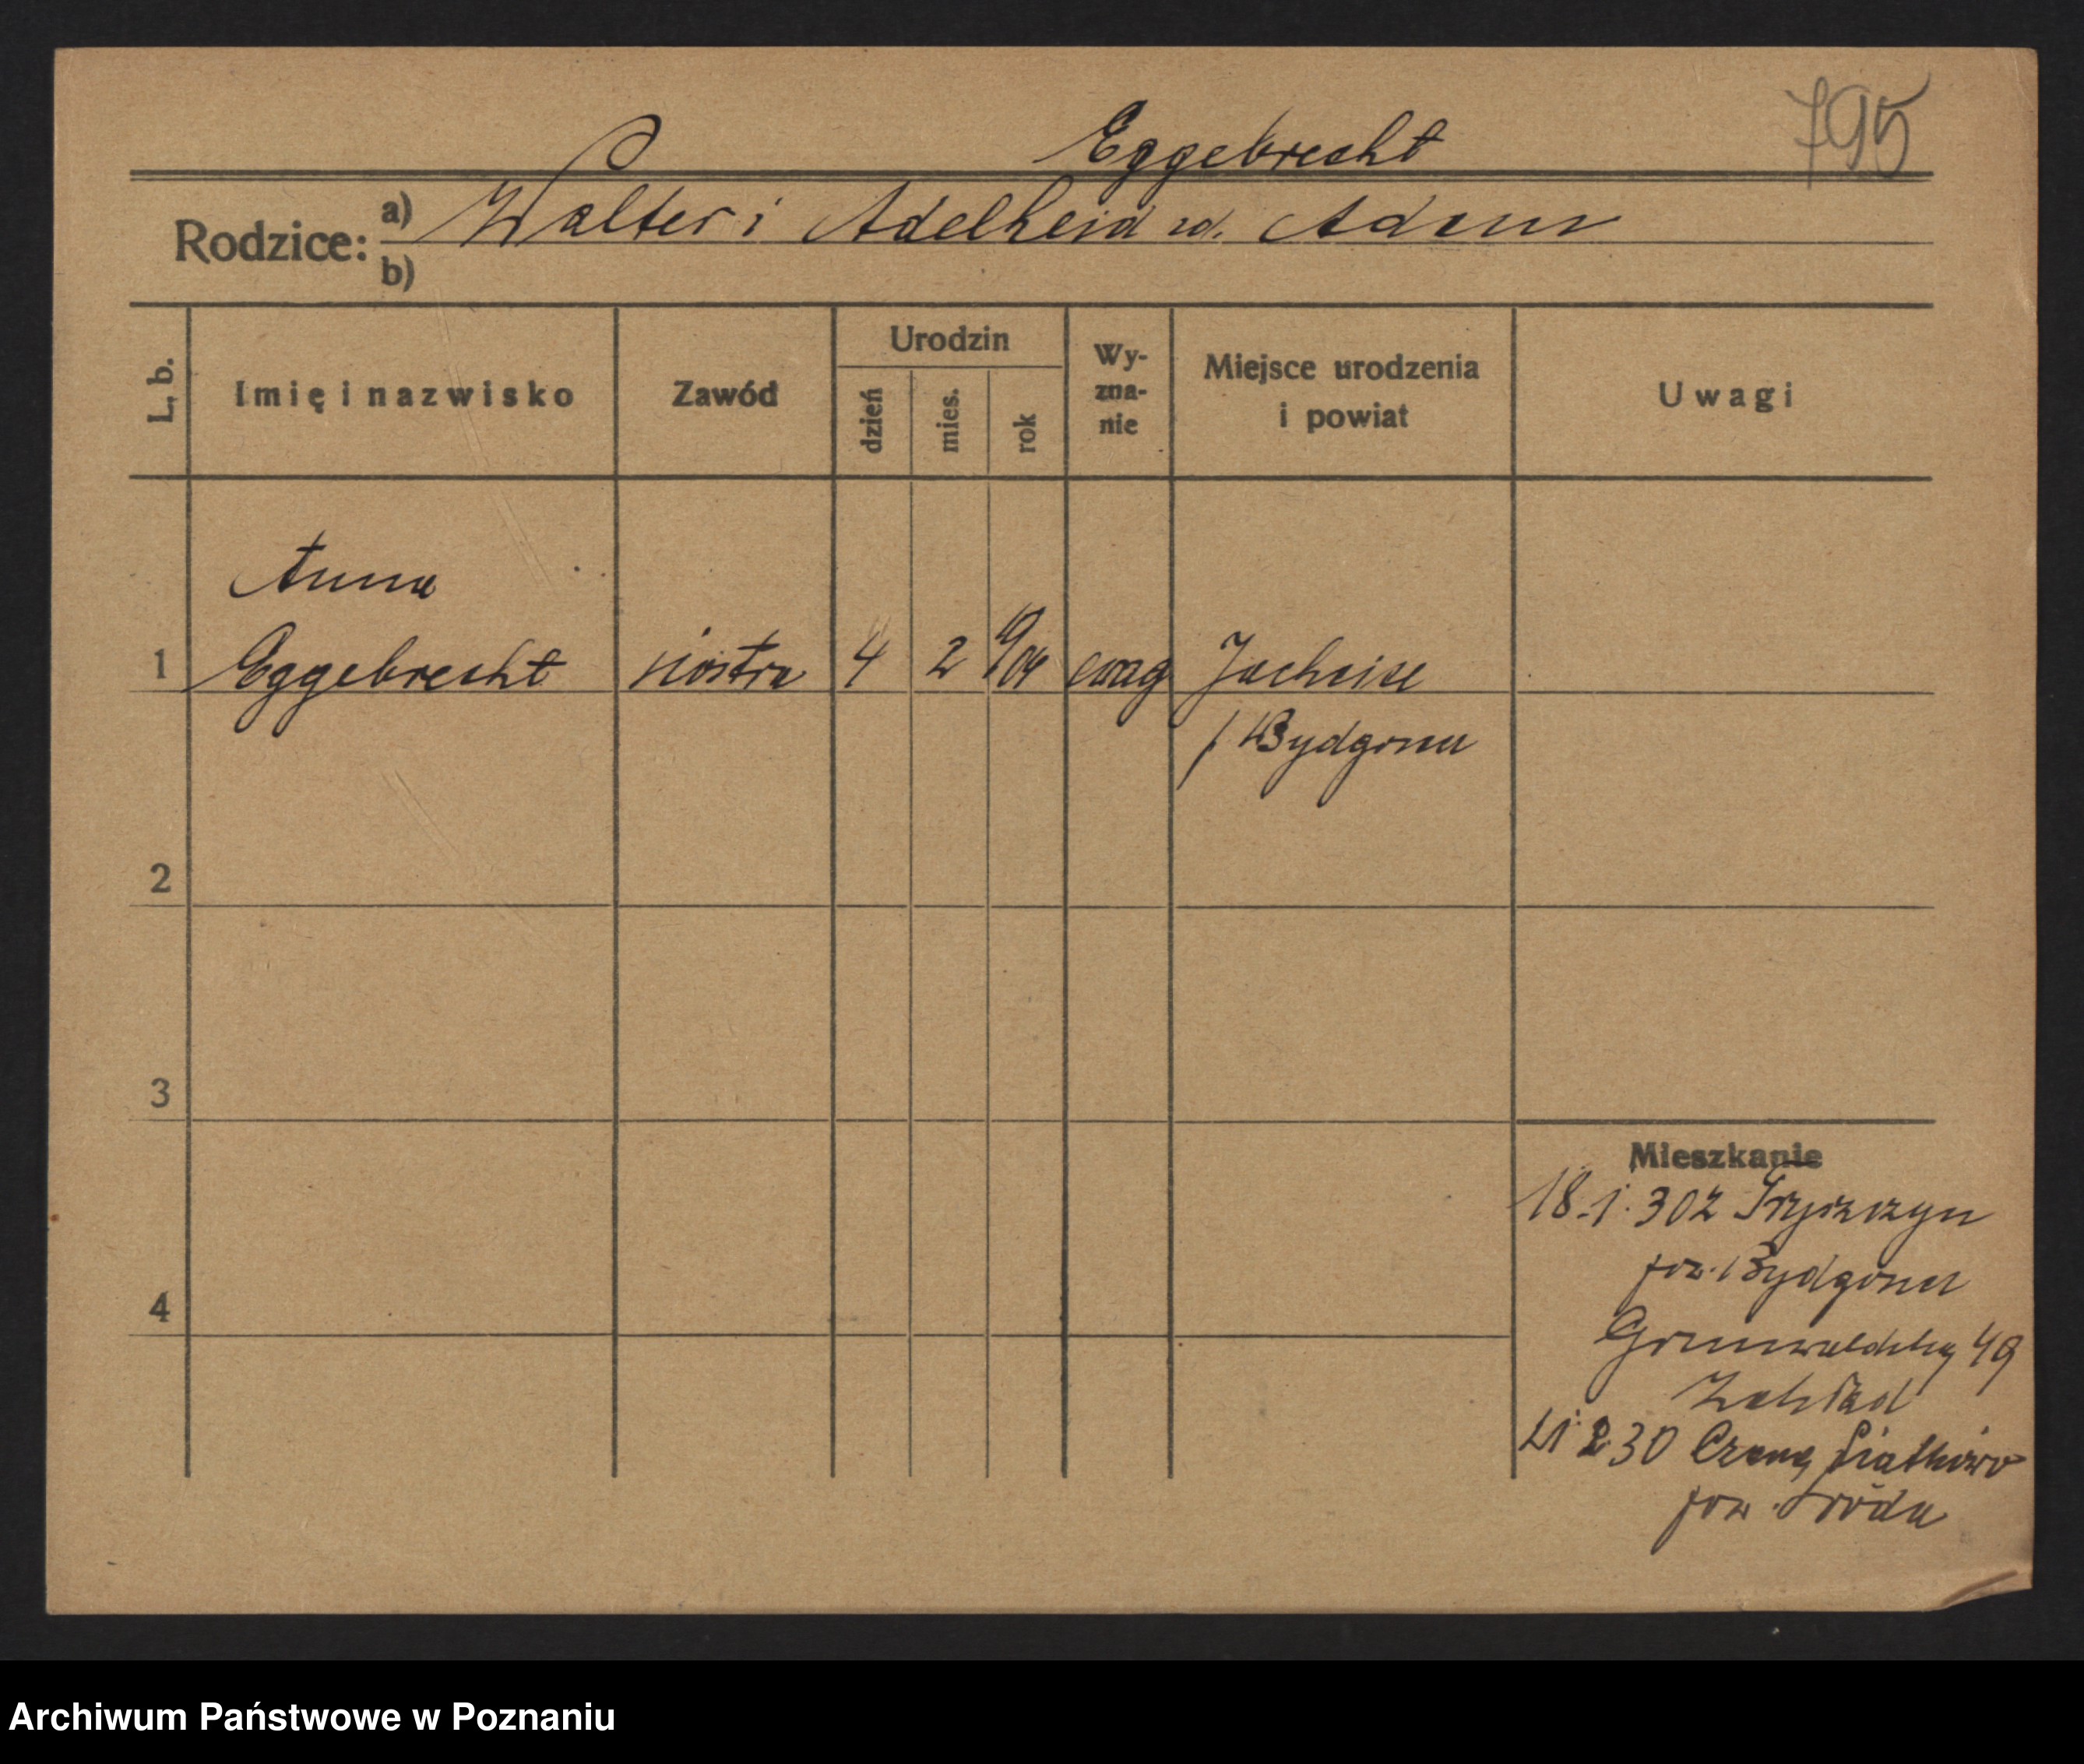 795
Eggebrecht
Rodzice: a) Walter i Adelheid ur. Adam
b)
L. b. Imię i nazwisko Zawód Urodzin dzień mies. rok Wy-zna-nie Miejsce urodzenia i powiat Uwagi
Anna
1 Eggebrecht siostra 4 2 904 ewag Jachcice
p. Bydgoszcz
2
3
4
Mieszkanie
18.1.30 z Tryszczyn
pow. Bydgoszcz
Grunwaldzka 49
Zakład
21.2.30 Czarne Piątkowo
pow. Środa
Archiwum Państwowe w Poznaniu